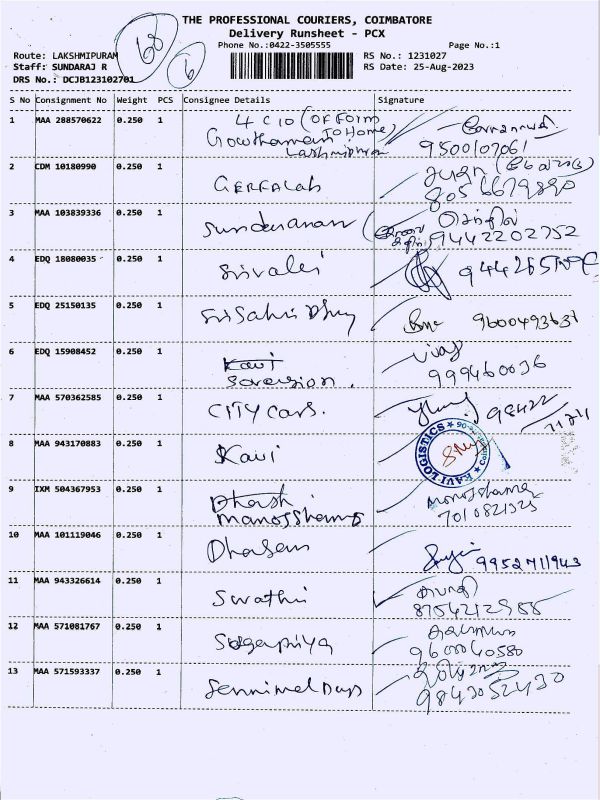 THE PROFESSIONAL COURIERS, COIMBATORE
Delivery Runsheet - PCX
Phone No.:0422-3505555 Page No.:1
Route: LAKSHMIPURAM RS No.: 1231027
Staff: SUNDARAJ R RS Date: 25-Aug-2023
DRS No.: DCJB123102701
68
6
S No Consignment No Weight PCS Consignee Details Signature
1 MAA 288570622 0.250 1 4 C10 (OFForm
Gowthaman To Home)
Lakshmipuram
9500107061
2 CDM 10180990 0.250 1
8056679890
3 MAA 103839336 0.250 1 Sundaranan
9442202752
4 EDQ 18080035 0.250 1 Srivalli
5 EDQ 25150135 0.250 1 9600493631
6 EDQ 15908452 0.250 1 Kavi Vijay
999460036
7 MAA 570362585 0.250 1 CITY Cars. 98422
8 MAA 943170883 0.250 1 Kavi KAVI LOGISTICS
9 IXM 504367953 0.250 1 Dhash
Manossharma Manossharma
7010821323
10 MAA 101119046 0.250 1 9952711943
11 MAA 943326614 0.250 1 Swathi
8754212988
12 MAA 571081767 0.250 1
9600040580
13 MAA 571593337 0.250 1
9843052430